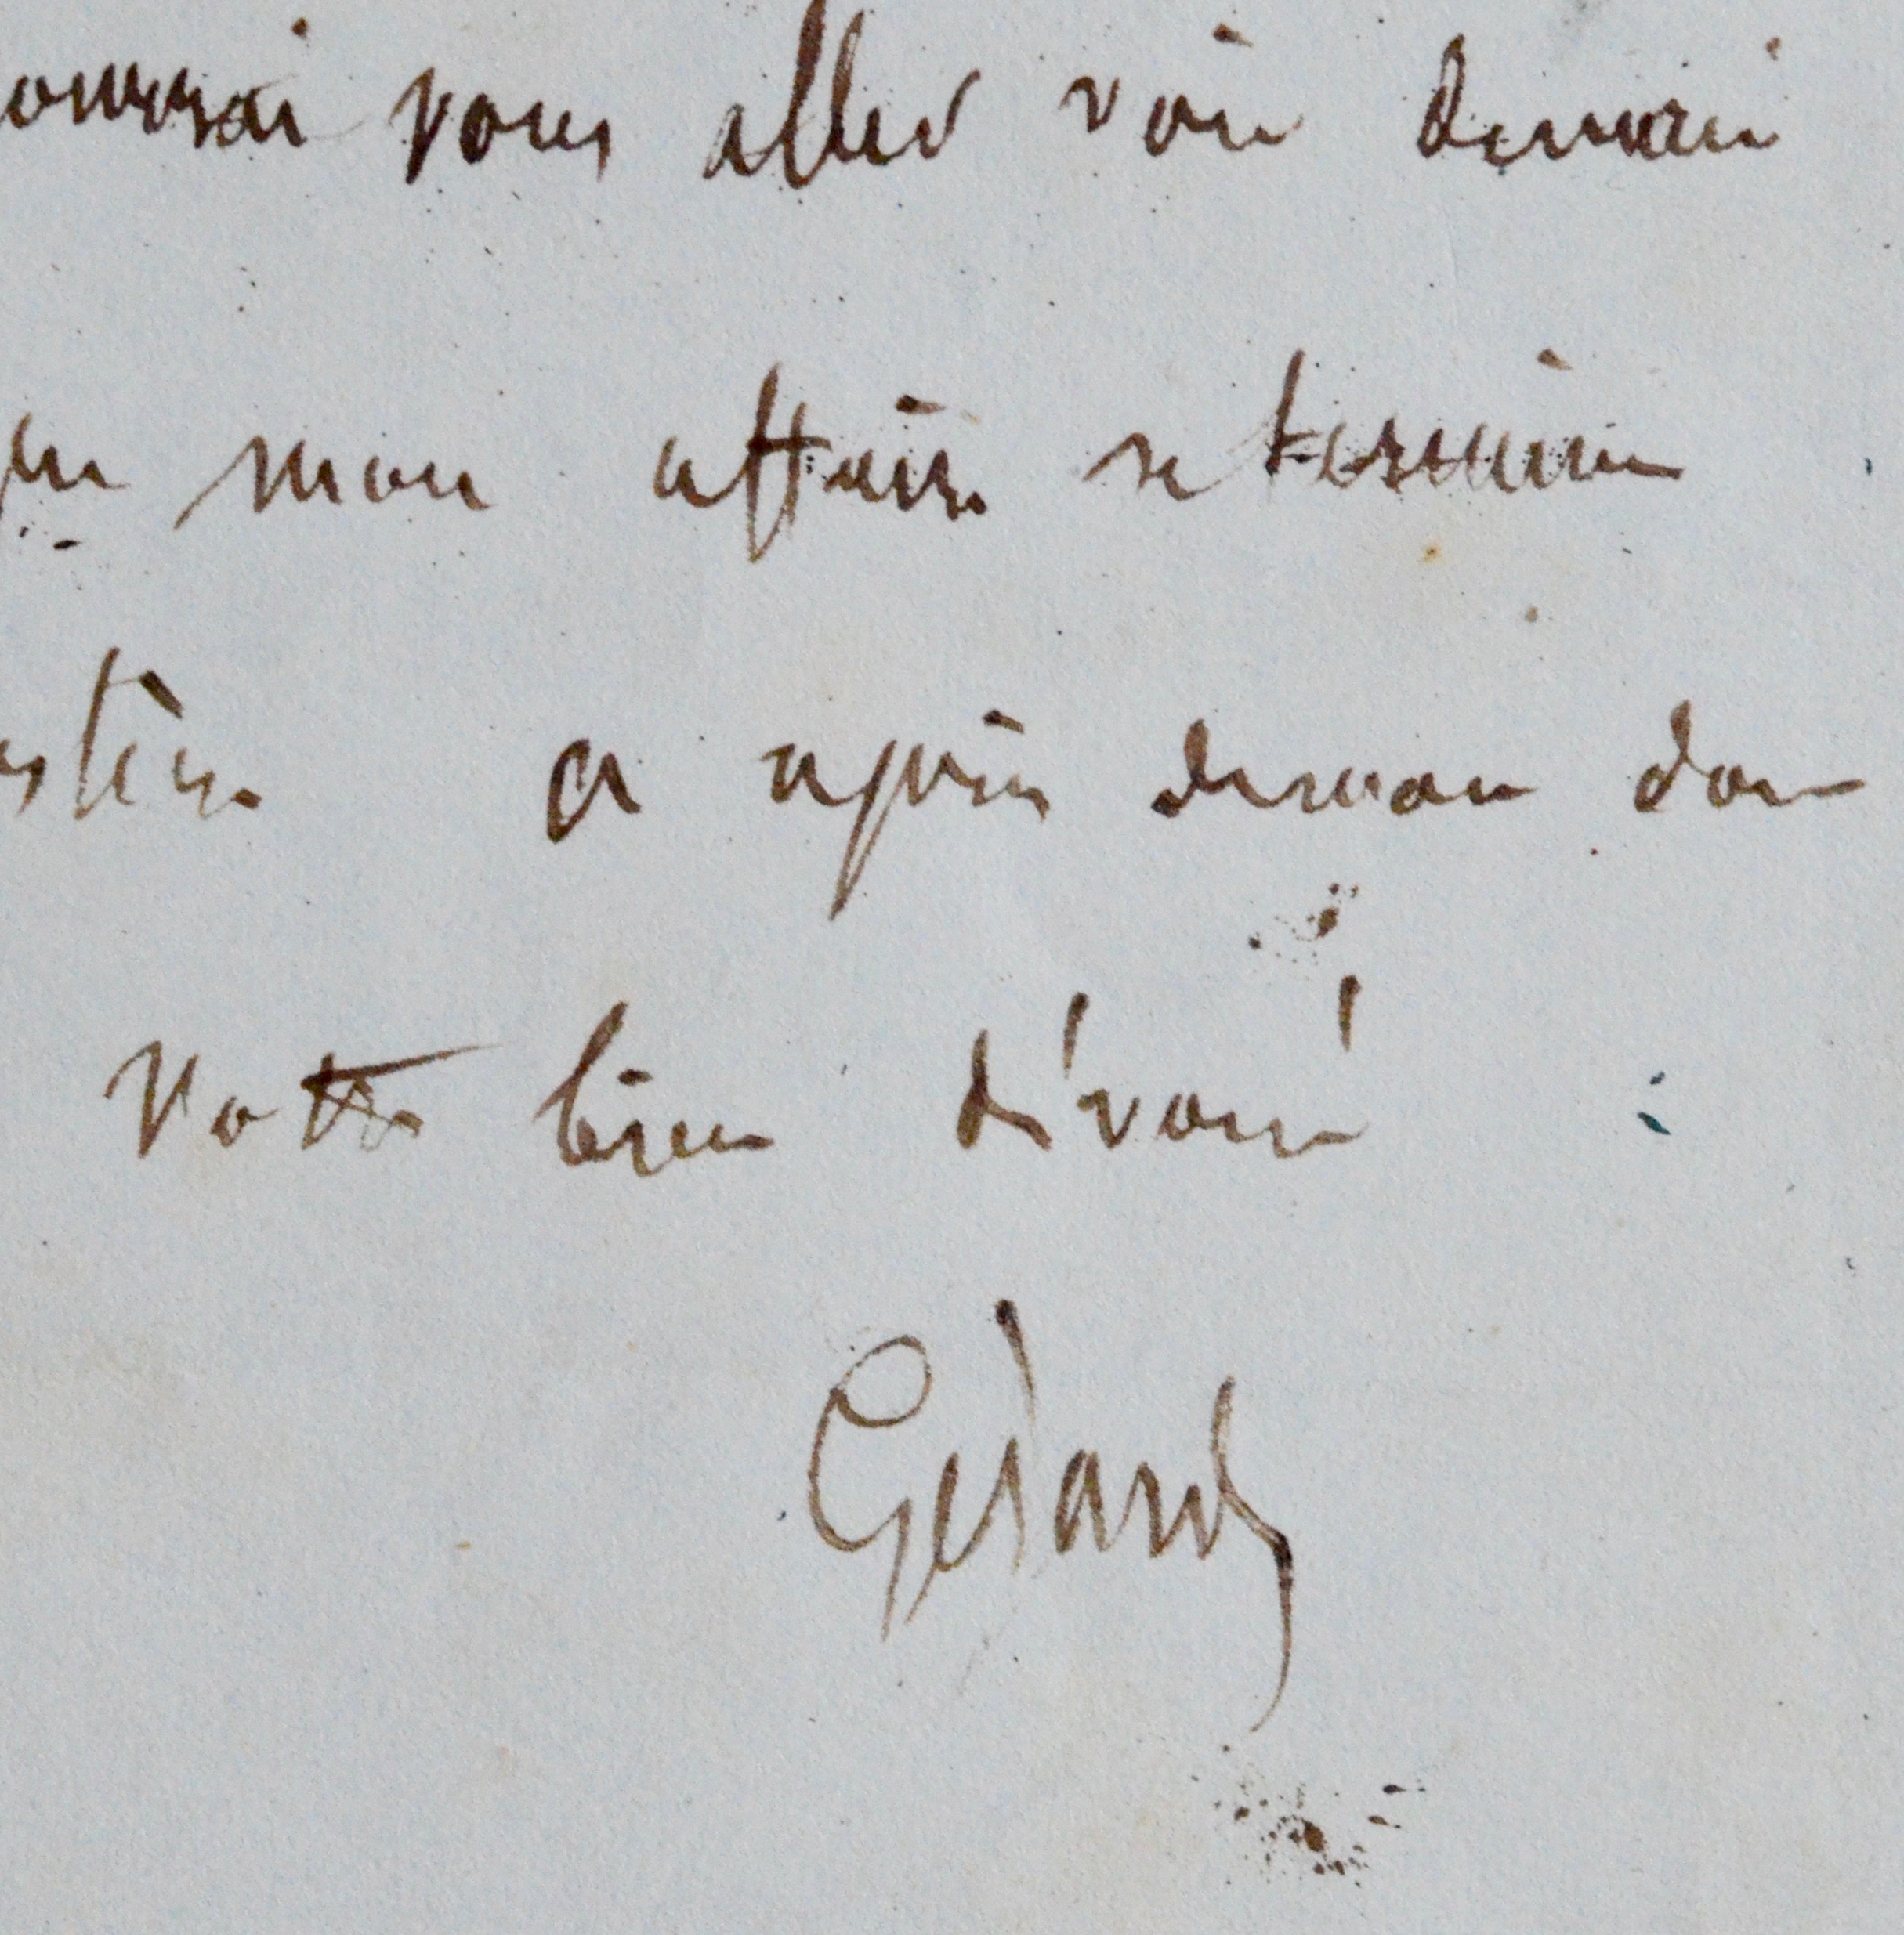 ourrai vous aller voir demain
que mon affaire se termine
stère. a après demain donc
Votre bien dévoué
Gérard